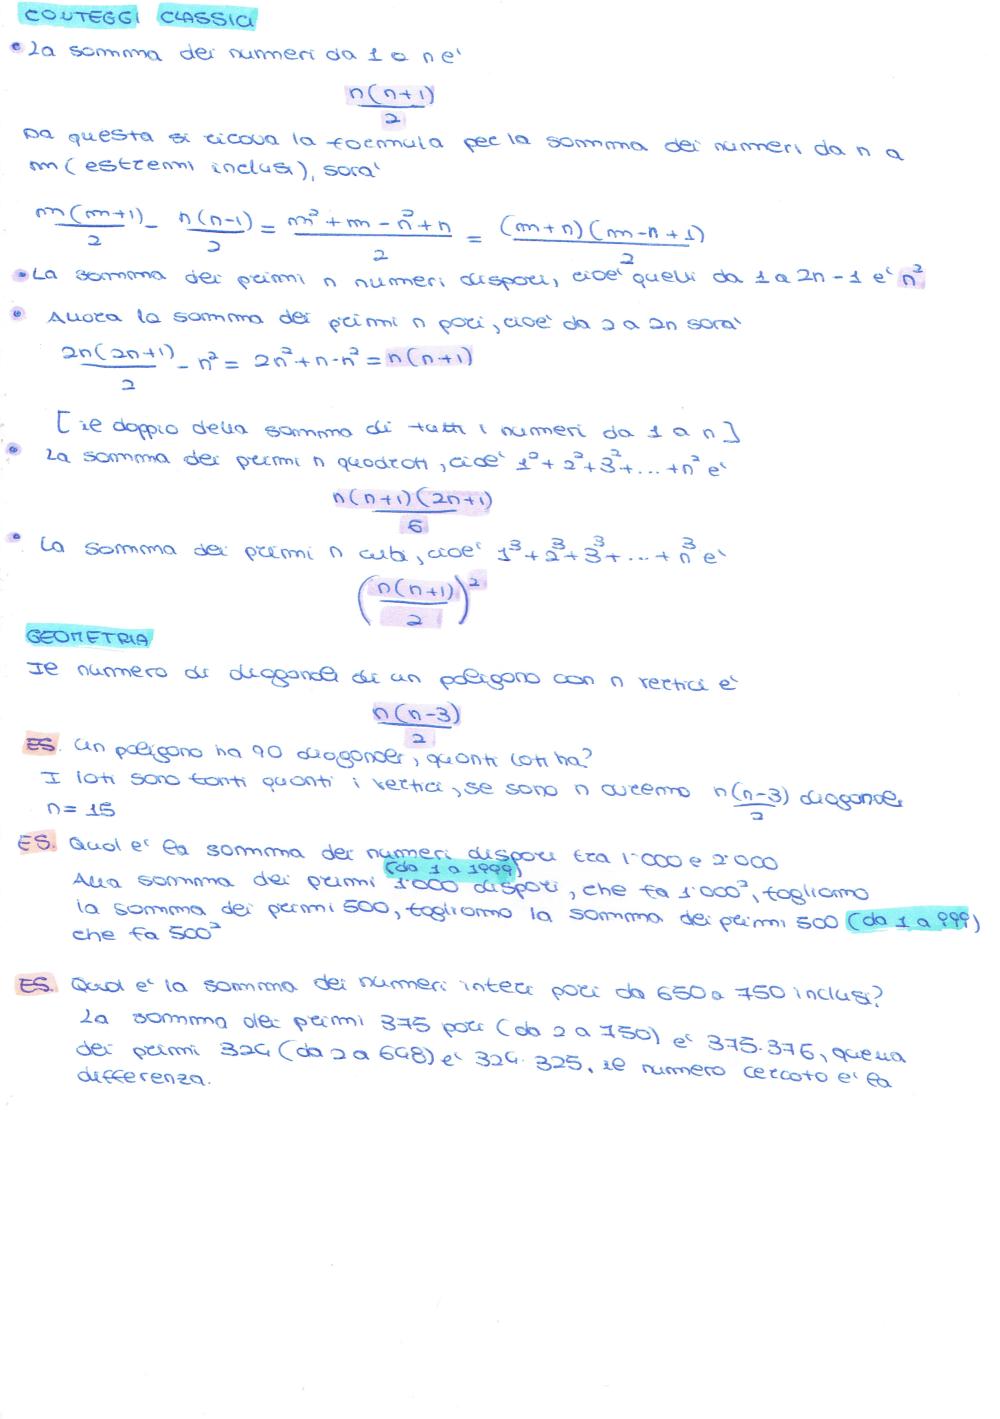 CONTEGGI CLASSICI
• La somma dei numeri da 1 a n e'
n(n+1)/2
Da questa si ricava la formula per la somma dei numeri da n a
m (estremi inclusi), sara'
m(m+1)/2 - n(n-1)/2 = (m²+m-n²+n)/2 = (m+n)(m-n+1)/2
• La somma dei primi n numeri dispari, cioe' quelli da 1 a 2n-1 e' n²
• Allora la somma dei primi n pari, cioe' da 2 a 2n sara'
2n(2n+1)/2 - n² = 2n²+n-n² = n(n+1)
[il doppio della somma di tutti i numeri da 1 a n]
• La somma dei primi n quadrati, cioe' 1²+2²+3²+...+n² e'
n(n+1)(2n+1)/6
• La somma dei primi n cubi, cioe' 1³+2³+3³+...+n³ e'
(n(n+1)/2)²
GEOMETRIA
Il numero di diagonali di un poligono con n vertici e'
n(n-3)/2
ES. Un poligono ha 90 diagonali, quanti lati ha?
I lati sono tanti quanti i vertici, se sono n avremo n(n-3)/2 diagonali
n= 15
ES. Qual e' la somma dei numeri dispari tra 1'000 e 2'000
(da 1 a 1999)
Alla somma dei primi 1'000 dispari, che fa 1'000², togliamo
la somma dei primi 500, togliamo la somma dei primi 500 (da 1 a 999)
che fa 500²
ES. Qual e' la somma dei numeri interi pari da 650 a 750 inclusi?
La somma dei primi 375 pari (da 2 a 750) e' 375·376, quella
dei primi 324 (da 2 a 648) e' 324·325, il numero cercato e' la
differenza.